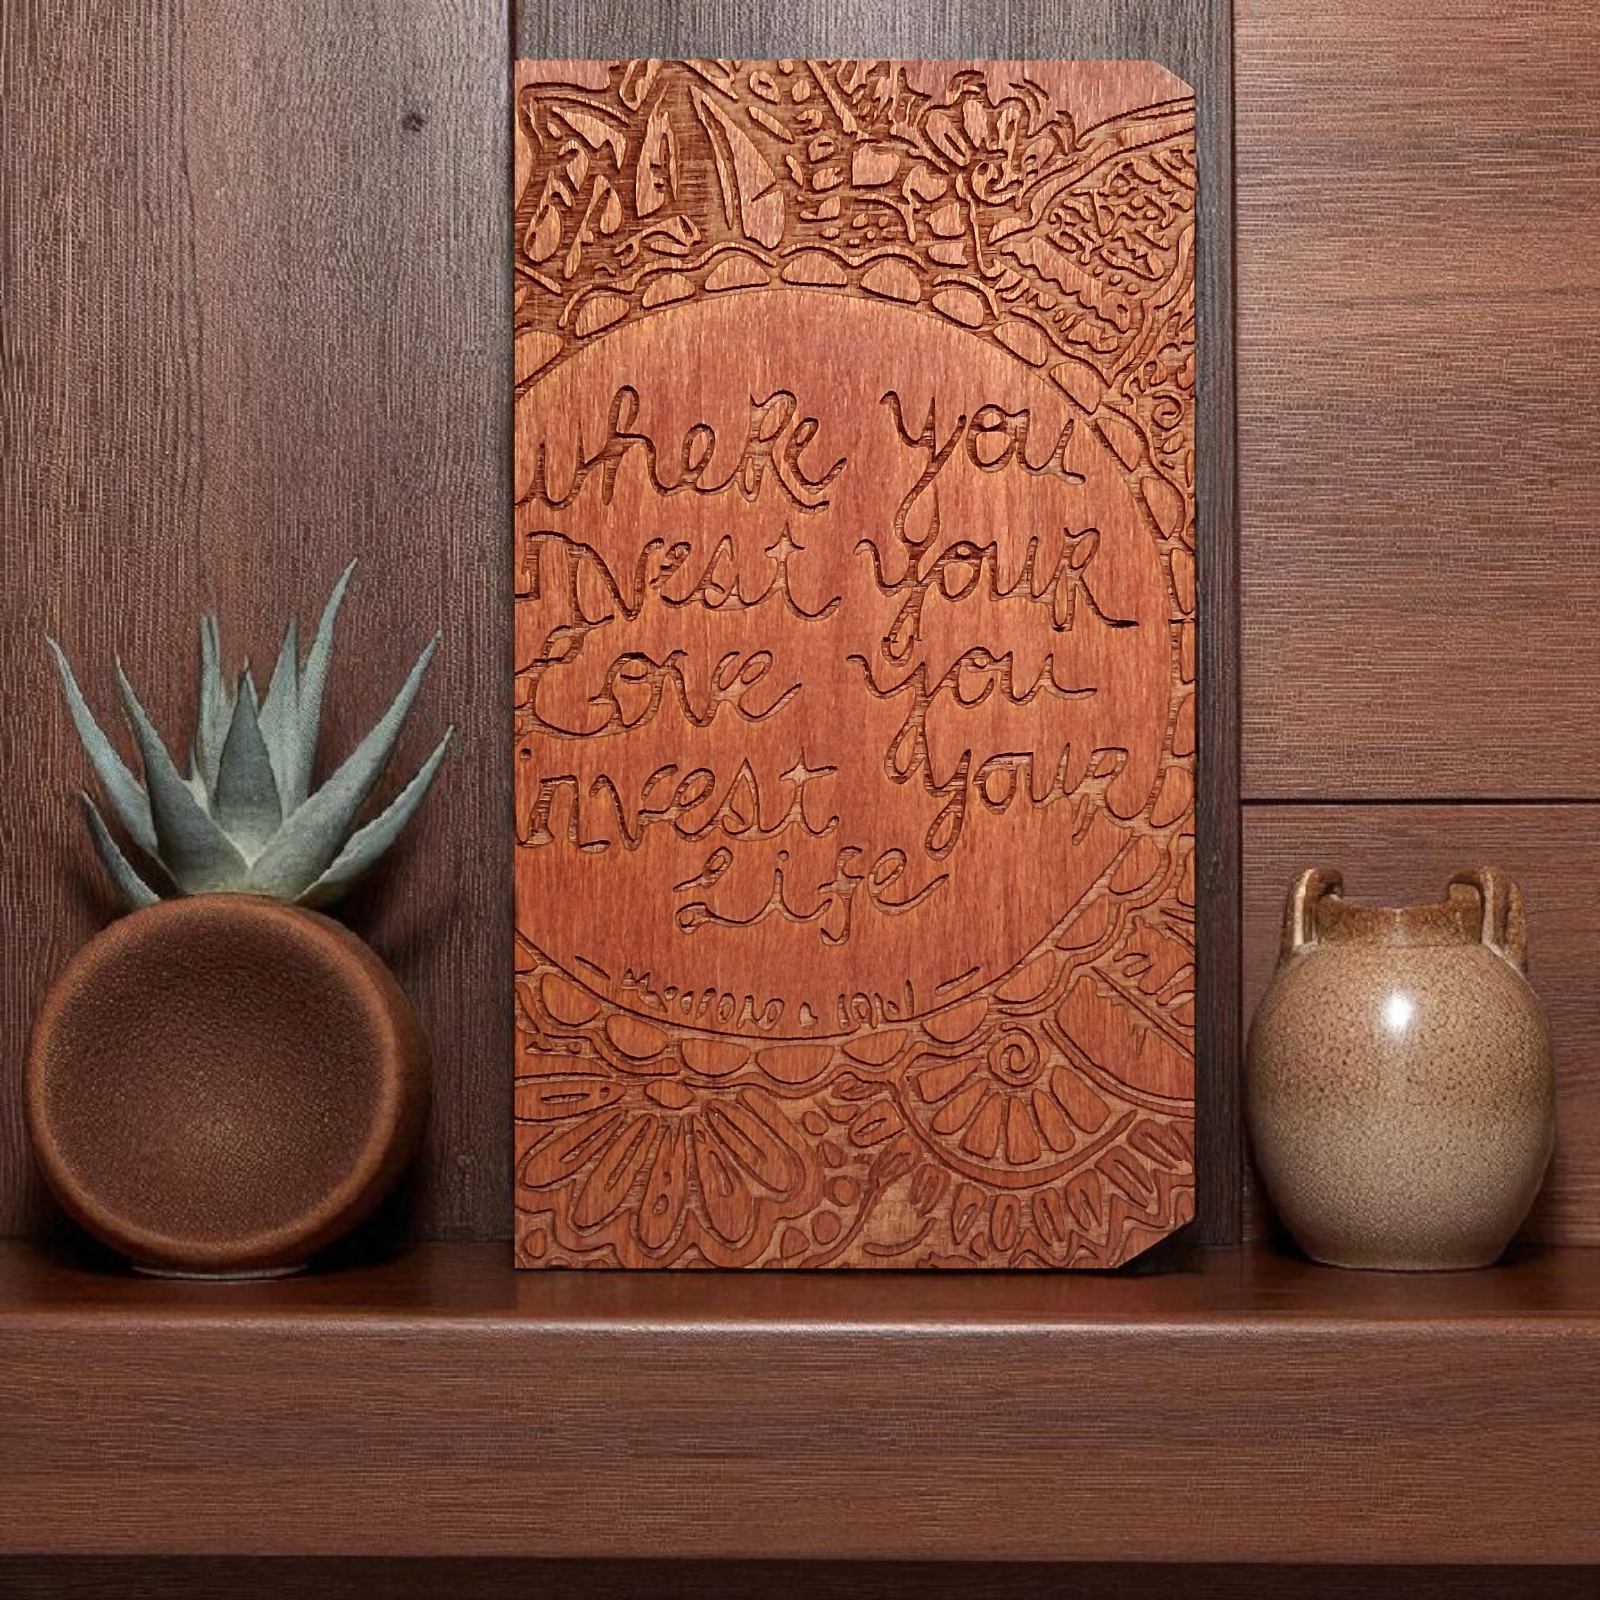 where you
invest your
love you
invest your
life